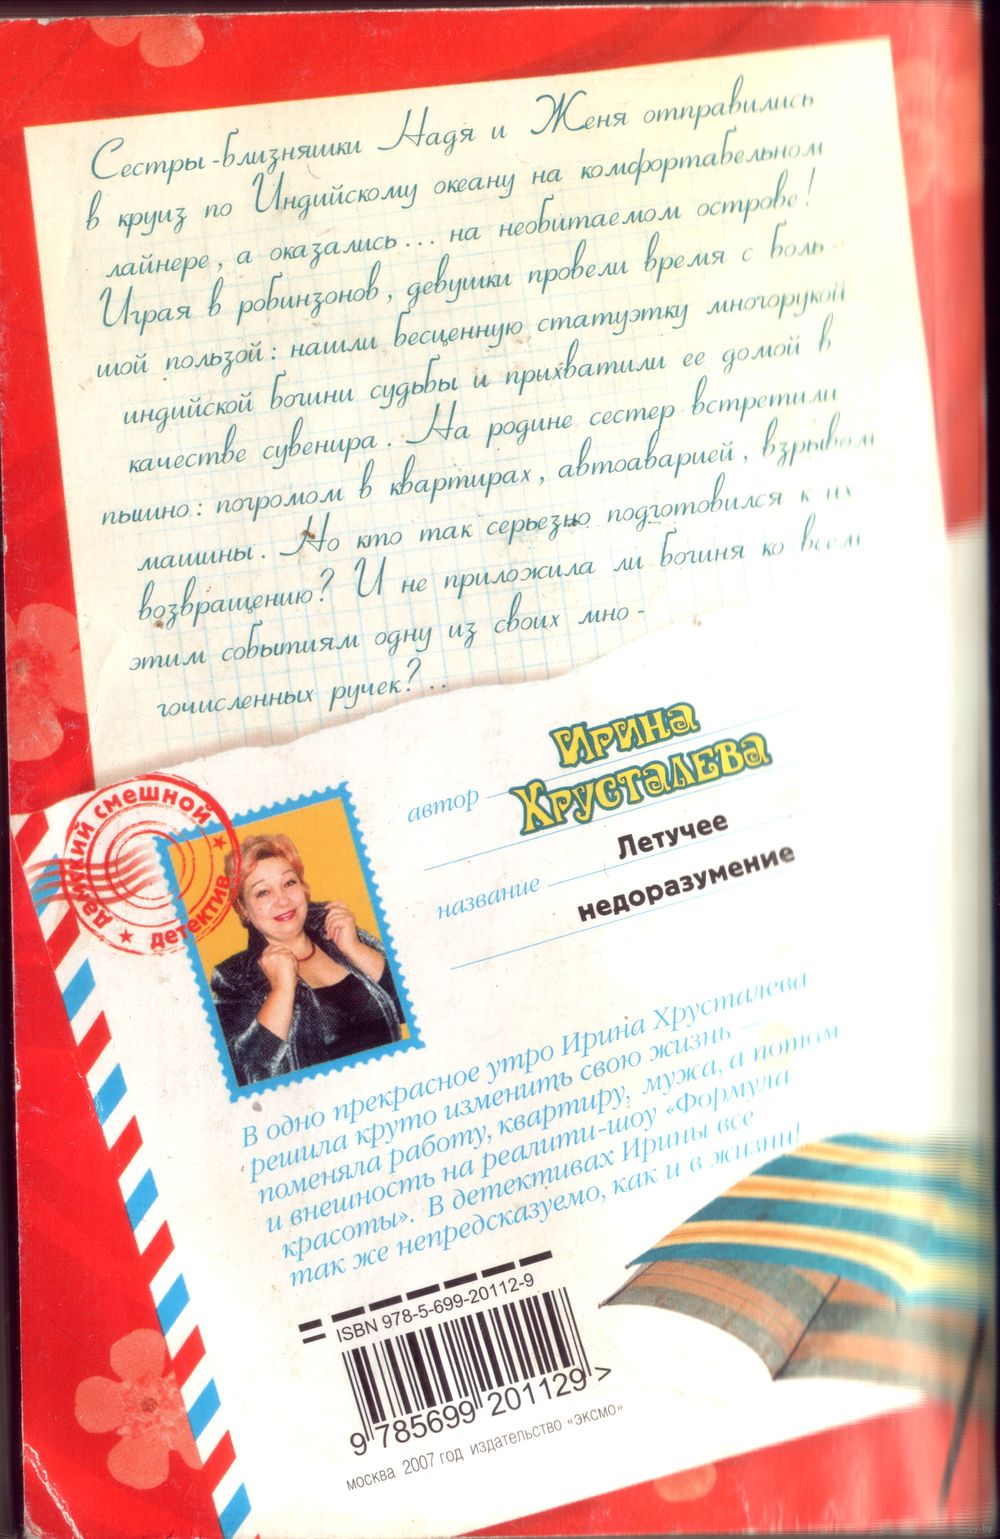 Сестры-близняшки Надя и Женя отправились
в круиз по Индийскому океану на комфортабельном
лайнере, а оказались... на необитаемом острове!
Играя в робинзонов, девушки провели время с боль-
шой пользой: нашли бесценную статуэтку многорукой
индийской богини судьбы и прихватили ее домой в
качестве сувенира. На родине сестер встретили
пышно: погромом в квартирах, автоаварией, взрывом
машины. Но кто так серьезно подготовился к их
возвращению? И не приложила ли богиня ко всем
этим событиям одну из своих мно-
гочисленных ручек?..
автор Ирина
Хрусталева
название Летучее
недоразумение
дамский смешной
детектив
В одно прекрасное утро Ирина Хрусталева
решила круто изменить свою жизнь —
поменяла работу, квартиру, мужа, а потом
и внешность на реалити-шоу «Формула
красоты». В детективах Ирины все
так же непредсказуемо, как и в жизни!
ISBN 978-5-699-20112-9
9 785699 201129 >
москва 2007 год издательство «эксмо»